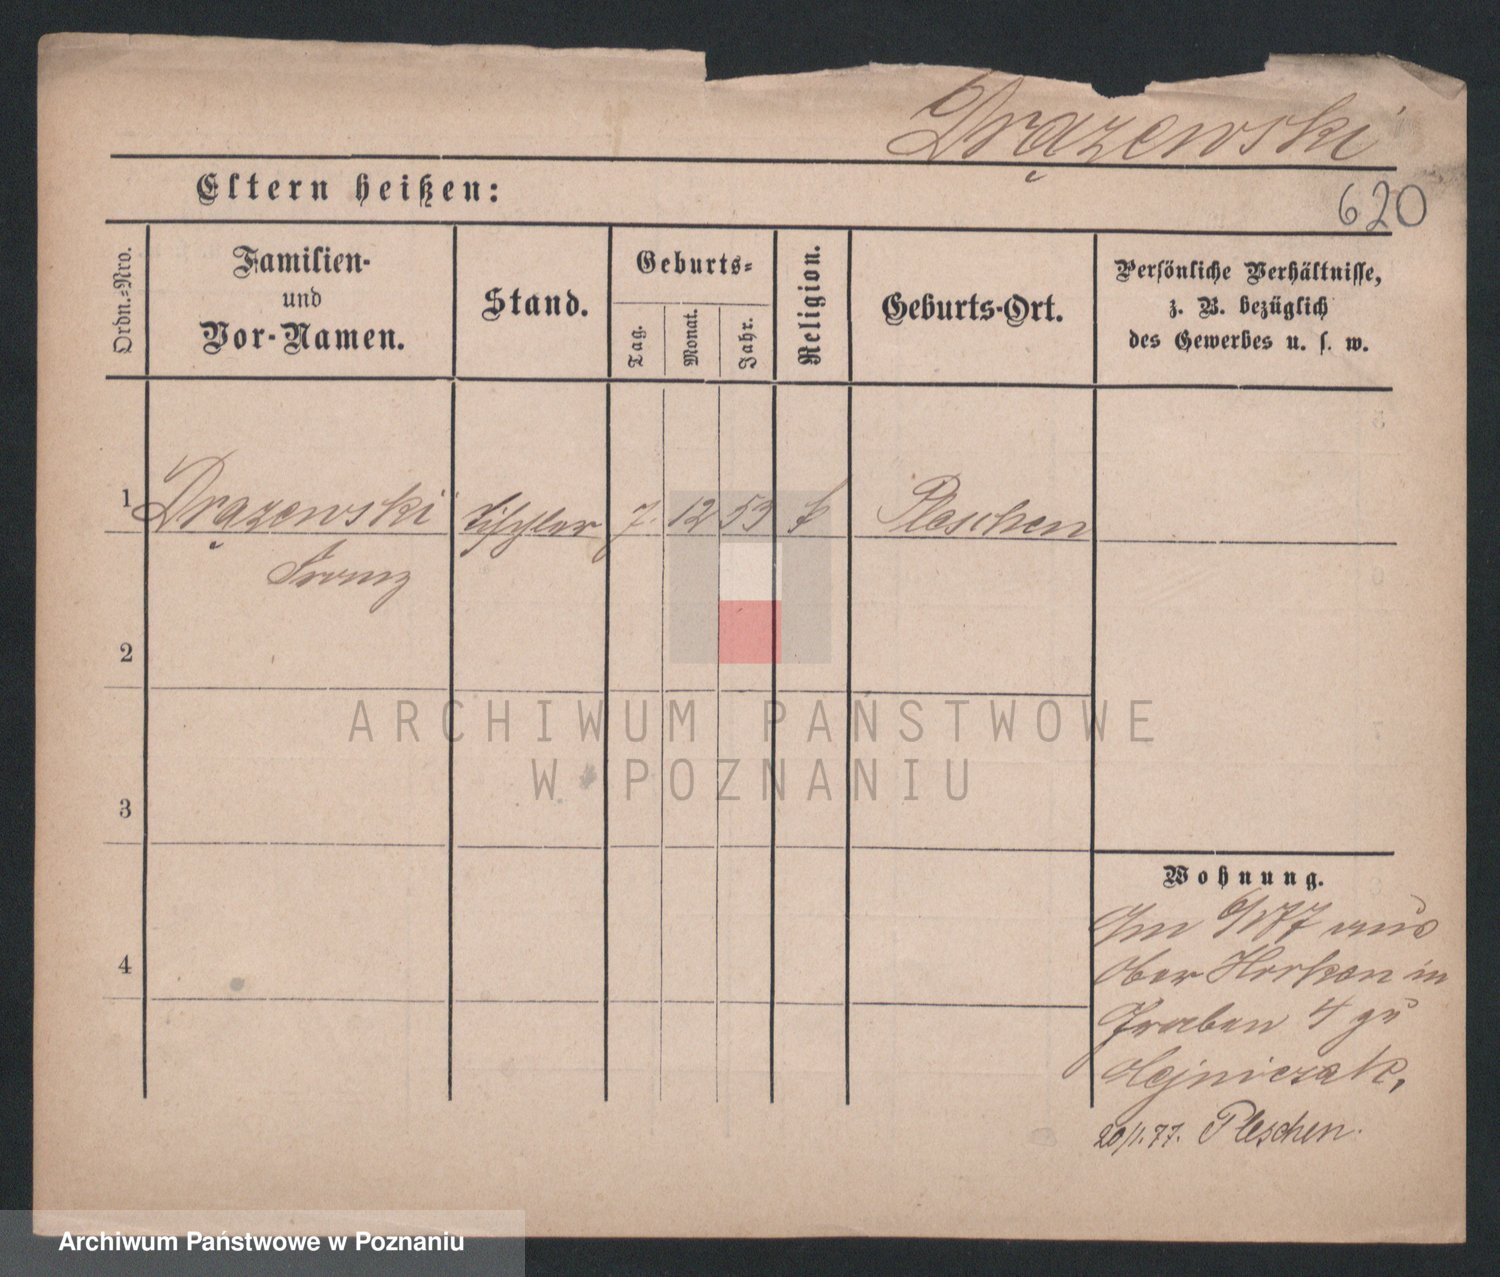 Drązewski
620
Eltern heißen:
Ordn.-Nro.
Familien-
und
Vor-Namen.
Stand.
Geburts-
Tag.
Monat.
Jahr.
Religion.
Geburts-Ort.
Persönliche Verhältnisse,
z. B. bezüglich
des Gewerbes u. s. w.
1 Drązewski Tischler 7. 12 53 k Pleschen
Franz
2
3
4
Wohnung.
aus
Ober in
Graben 4 zu
Wojniczak,
20/1.77. Pleschen.
ARCHIWUM PAŃSTWOWE
W POZNANIU
Archiwum Państwowe w Poznaniu